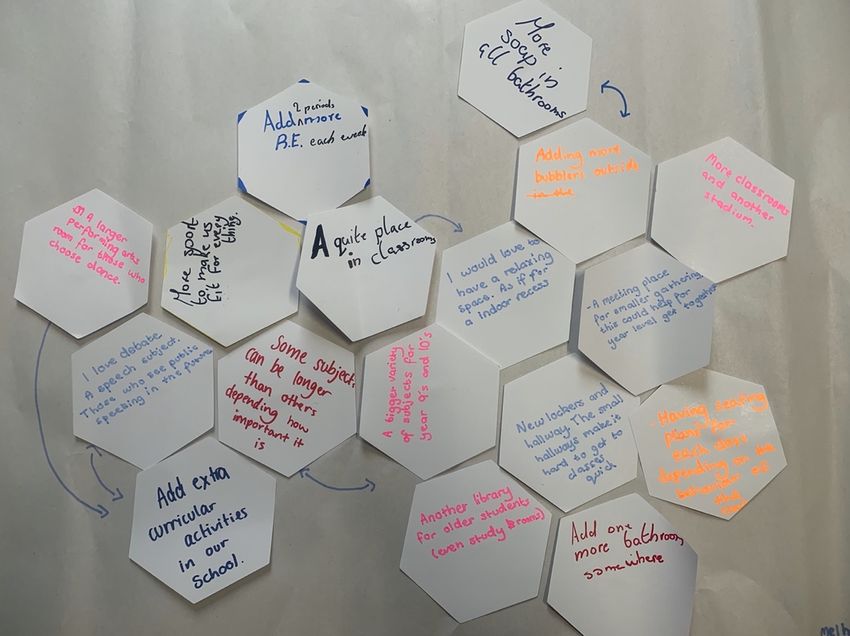 More
soap in
all bathrooms
2 periods
Add more
R.E. each week
Adding more
bubblers outside
in the
More classrooms
and another
stadium.
A larger
performing arts
room for those who
choose dance.
More sport
to make us
fit for every
thing.
A quite place
in classrooms
I would love to
have a relaxing
space. As if for
a indoor recess
- A meeting place
for smaller gatherings
this could help for
year level get together
I love debate
A speech subject.
Those who see public
speeking in the future
Some subjects
can be longer
than others
depending how
important it
is
A bigger variety
of subjects for
year 9's and 10's
New lockers and
hallway. The small
hallways make it
hard to get to
classes
quick
- Having seating
plans for
each class
depending on the
behavior of
the
Add extra
curricular
activities
in our
school.
Another library
for older students
(even study rooms)
Add one
more bathroom
somewhere